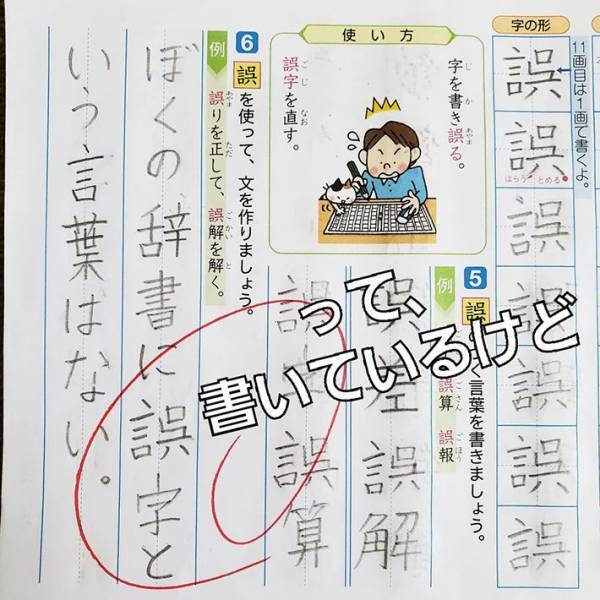 字の形
11画目は1画で書くよ。
誤
誤
はらう とめる
誤
誤
誤
誤
誤
使い方
じ か あやま
字を書き誤る。
ごじ なお
誤字を直す。
5
誤 く言葉を書きましょう。
例
ごさん ごほう
誤算 誤報
誤差 誤解
誤 誤算
6
誤を使って、文を作りましょう。
例
あやま ただ ごかい と
誤りを正して、誤解を解く。
ぼくの辞書に誤字と
いう言葉はない。
って、
書いているけど